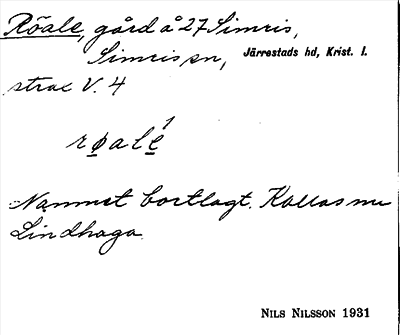 Röale, gård å 27 Simris,
Simris sn, Järrestads hd, Krist. l.
strax V. 4
røale¹
Namnet bortlagt. Kallas nu
Lindhaga.
NILS NILSSON 1931